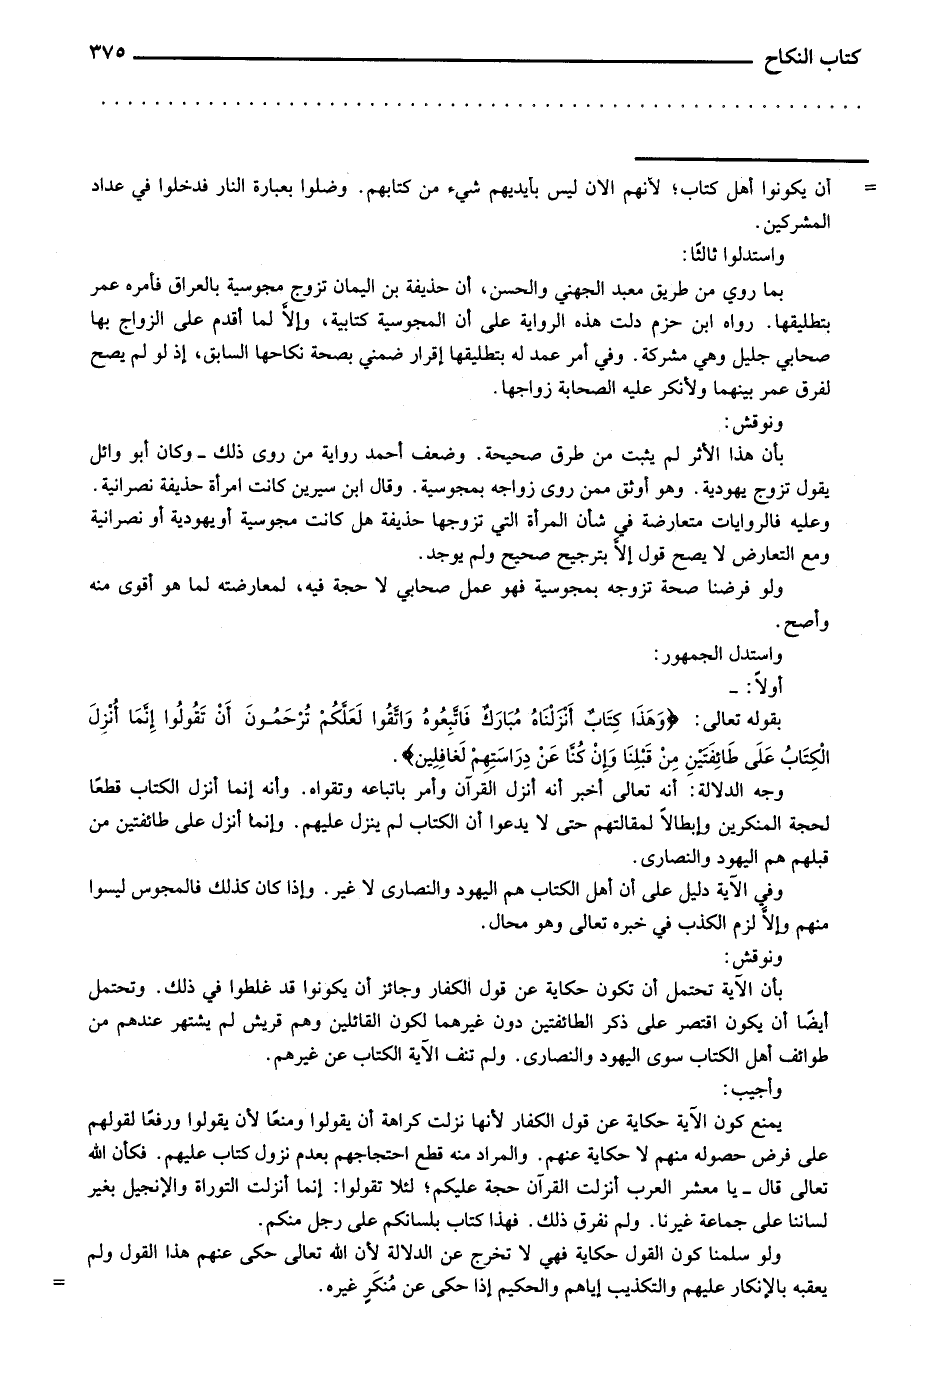 كتاب النكاح ٣٧٥
= أن يكونوا أهل كتاب؛ لأنهم الان ليس بأيديهم شيء من كتابهم. وضلوا بعبارة النار فدخلوا في عداد
المشركين.
واستدلوا ثالثًا:
بما روي من طريق معبد الجهني والحسن، أن حذيفة بن اليمان تزوج مجوسية بالعراق فأمره عمر
بتطليقها. رواه ابن حزم دلت هذه الرواية على أن المجوسية كتابية، وإلاَّ لما أقدم على الزواج بها
صحابي جليل وهي مشركة. وفي أمر عمد له بتطليقها إقرار ضمني بصحة نكاحها السابق، إذ لو لم يصح
لفرق عمر بينهما ولأنكر عليه الصحابة زواجها.
ونوقش:
بأن هذا الأثر لم يثبت من طرق صحيحة. وضعف أحمد رواية من روى ذلك ـ وكان أبو وائل
يقول تزوج يهودية. وهو أوثق ممن روى زواجه بمجوسية. وقال ابن سيرين كانت امرأة حذيفة نصرانية.
وعليه فالروايات متعارضة في شأن المرأة التي تزوجها حذيفة هل كانت مجوسية أويهودية أو نصرانية
ومع التعارض لا يصح قول إلاَّ بترجيح صحيح ولم يوجد.
ولو فرضنا صحة تزوجه بمجوسية فهو عمل صحابي لا حجة فيه، لمعارضته لما هو أقوى منه
وأصح.
واستدل الجمهور:
أولاً: ـ
بقوله تعالى: ﴿وَهَذَا كِتَابٌ أَنْزَلْنَاهُ مُبَارَكٌ فَاتَّبِعُوهُ وَاتَّقُوا لَعَلَّكُمْ تُرْحَمُونَ أَنْ تَقُولُوا إِنَّمَا أُنْزِلَ
الْكِتَابُ عَلَى طَائِفَتَيْنِ مِنْ قَبْلِنَا وَإِنْ كُنَّا عَنْ دِرَاسَتِهِمْ لَغافِلِين﴾.
وجه الدلالة: أنه تعالى أخبر أنه أنزل القرآن وأمر باتباعه وتقواه. وأنه إنما أنزل الكتاب قطعًا
لحجة المنكرين وإبطالاً لمقالتهم حتى لا يدعوا أن الكتاب لم ينزل عليهم. وإنما أنزل على طائفتين من
قبلهم هم اليهود والنصارى.
وفي الآية دليل على أن أهل الكتاب هم اليهود والنصارى لا غير. وإذا كان كذلك فالمجوس ليسوا
منهم وإلاَّ لزم الكذب في خبره تعالى وهو محال.
ونوقش:
بأن الآية تحتمل أن تكون حكاية عن قول الكفار وجائز أن يكونوا قد غلطوا في ذلك. وتحتمل
أيضًا أن يكون اقتصر على ذكر الطائفتين دون غيرهما لكون القائلين وهم قريش لم يشتهر عندهم من
طوائف أهل الكتاب سوى اليهود والنصارى. ولم تنف الآية الكتاب عن غيرهم.
وأجيب:
يمنع كون الآية حكاية عن قول الكفار لأنها نزلت كراهة أن يقولوا ومنعًا لأن يقولوا ورفعًا لقولهم
على فرض حصوله منهم لا حكاية عنهم. والمراد منه قطع احتجاجهم بعدم نزول كتاب عليهم. فكأن الله
تعالى قال ـ يا معشر العرب أنزلت القرآن حجة عليكم؛ لئلا تقولوا: إنما أنزلت التوراة والإنجيل بغير
لساننا على جماعة غيرنا. ولم نفرق ذلك. فهذا كتاب بلسانكم على رجل منكم.
ولو سلمنا كون القول حكاية فهي لا تخرج عن الدلالة لأن الله تعالى حكى عنهم هذا القول ولم
يعقبه بالإنكار عليهم والتكذيب إياهم والحكيم إذا حكى عن مُنكَرٍ غيره. =